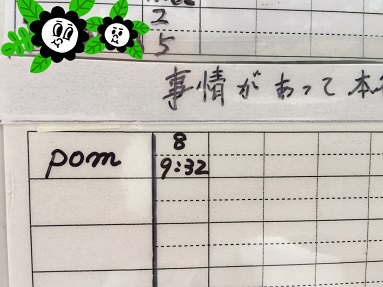 2
5
事情があって本
pom
8
9:32